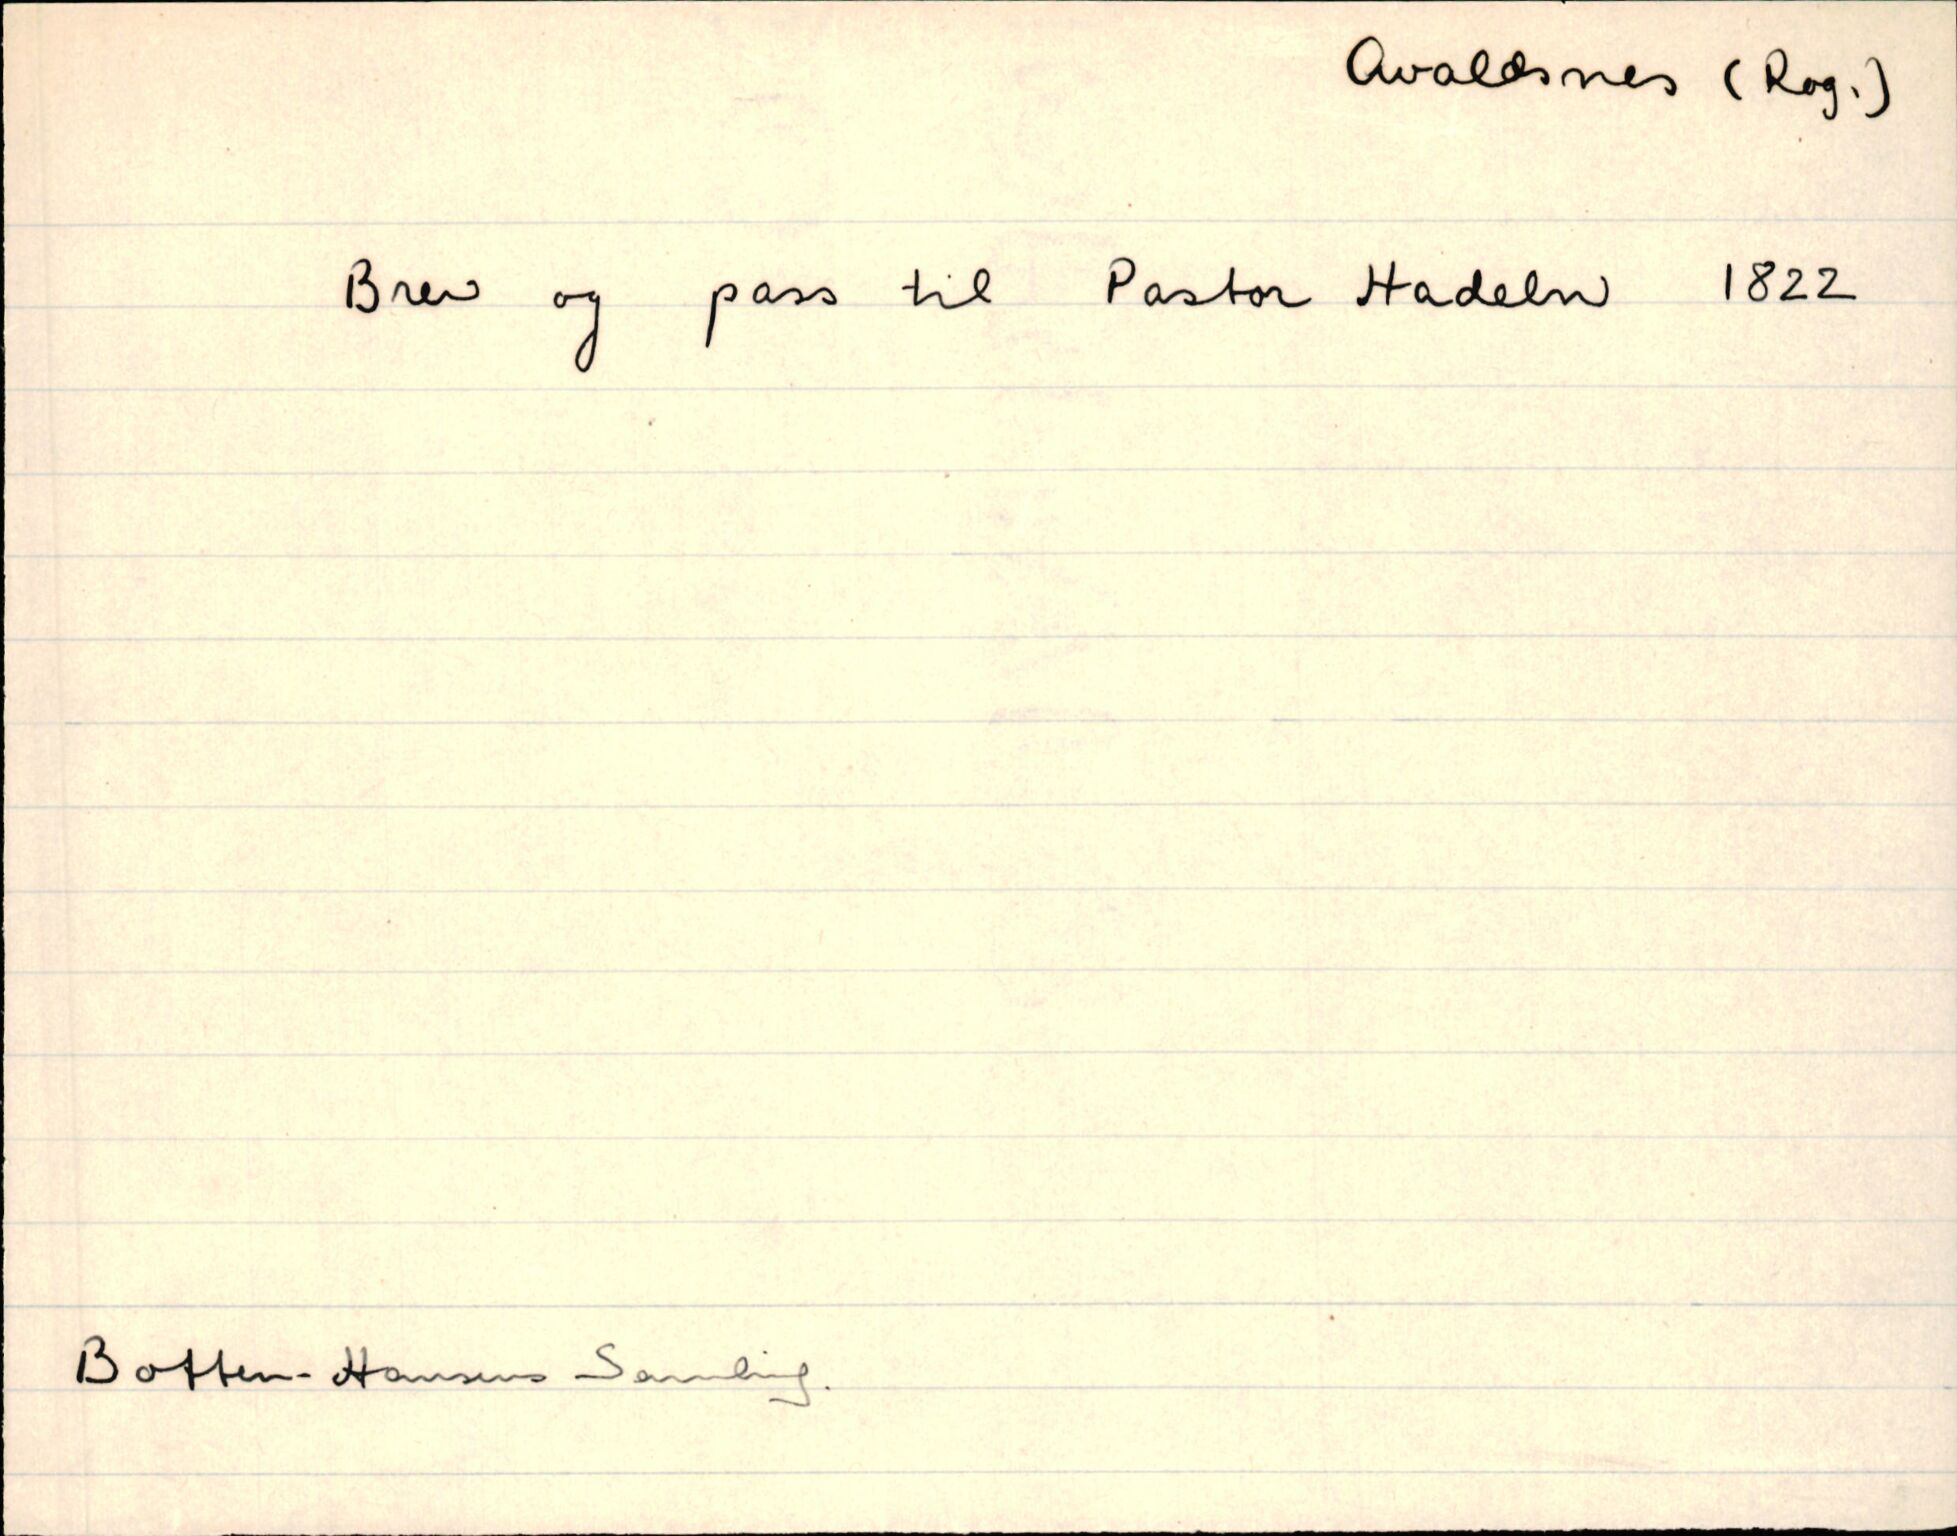 Avaldsnes (Rog.)
Brev og pass til Pastor Hadeln 1822
Botten-Hansens Samling.